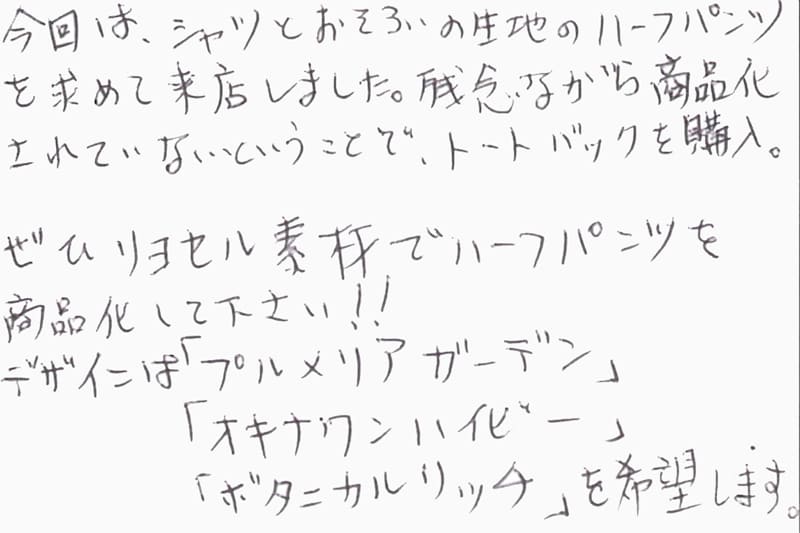 今回は、シャツとおそろいの生地のハーフパンツ
を求めて来店しました。残念ながら商品化
されていないということで、トートバックを購入。
ぜひリヨセル素材でハーフパンツを
商品化して下さい!!
デザインは「プルメリアガーデン」
「オキナワンハイビー」
「ボタニカルリッチ」を希望します。